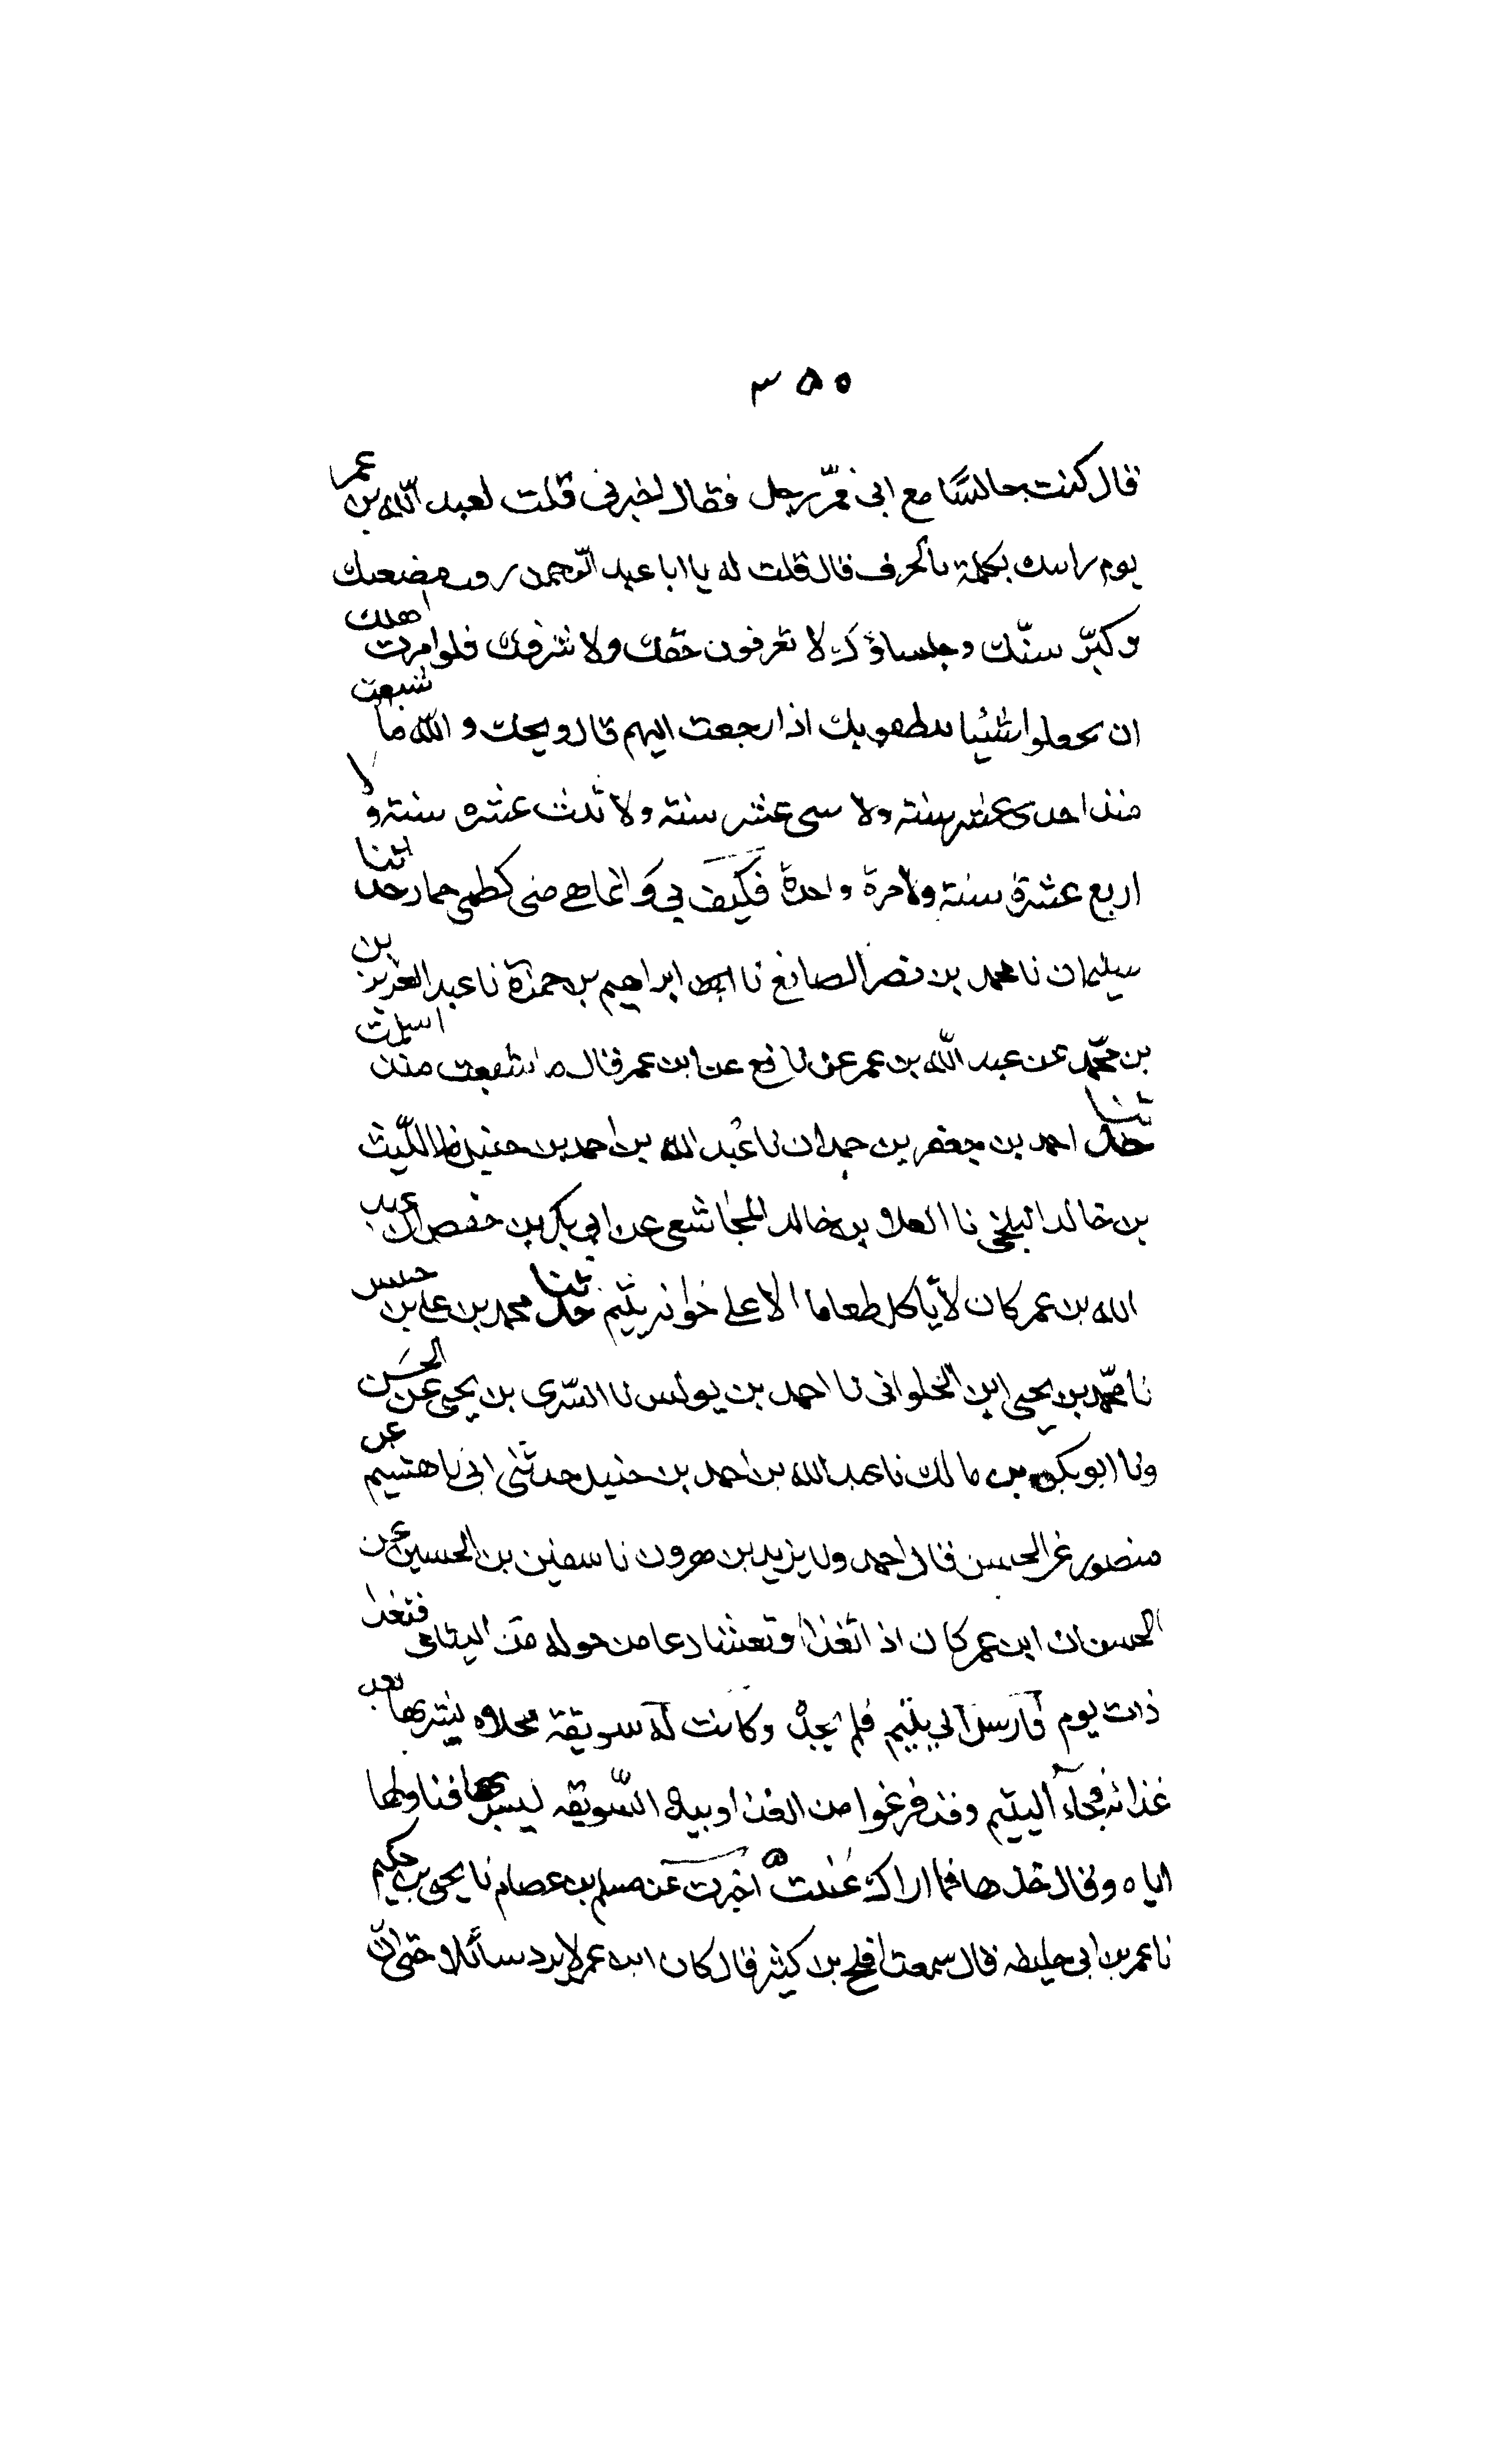 ٣٥٥
قال كنت جالسًا مع ابى فمرّ رجل فقال اخبرنى قلت لعبد الله بن عمر
يوم راىىك بكلمة بالجرف فال قلت له يا ابا عبد الرّحمن رقت مضغتك
وكبّر سنّك وجلساؤك لا يعرفون حقك ولا شرفك فلو امرت اهلك
ان يجعلوا شيئا يلطفونك اذا رجعت اليهم قال ويحك و الله ما شبعت
منذ احدى عشر سنة ولا اثنى عشر سنة ولا ثلث عشره سنة ولا
اربع عشرة سنة ولا مرة واحدة فكيف بي و انما بقى منى كظمئ حمار حدثنا
سليمان نا محمد بن نصر الصائغ نا ابراهيم بن حمزة نا عبد العزيز بن
بن محمّد عن عبد الله بن عمر عن نافع عن ابن عمر قال ما شبعت منذ اسلمت
حدثنا احمد بن جعفر بن حمدان نا عبد الله بن احمد بن حنبل نا الليث
بن خالد البلخى نا العلا بن خالد المجاشعى عن ابي بكر بن حفص ان عبد
الله بن عمر كان لا يأكل طعاما الا على خوانه يتيم حدثنا محمد بن على بن حبيش
نا محمّد بن يحيى ابن الحلوانى نا احمد بن يونس نا السّرى بن يحيى عن الحسَن
ونا ابو بكر بن مالك نا عبد الله بن احمد بن حنبل حدثنى ابى نا هشيم عن
منصور عن الحسن قال احمد ونا يزيد بن هرون نا سفين بن الحسين عن
الحسن ان ابن عمر كان اذا تغذا او تعشا دعا من حوله من اليتامى فتغذا
ذات يوم فارسل الى يتيم فلم يجده وكانت له سويقة محلاه يشربها بعد
غذائه فجاء اليتيم وقد فرغوا من الغذا وبيده السّويقه ليشربها فناولها
اياه وقال خذها فما اراك غبنت اخبرت عن مسلم بن عصام نا يحيى بن حكيم
نا عمر بن ابى خليفه قال سمعت افلح بن كثير قال كان ابن عمر لا يرد سائلا حتى انّ